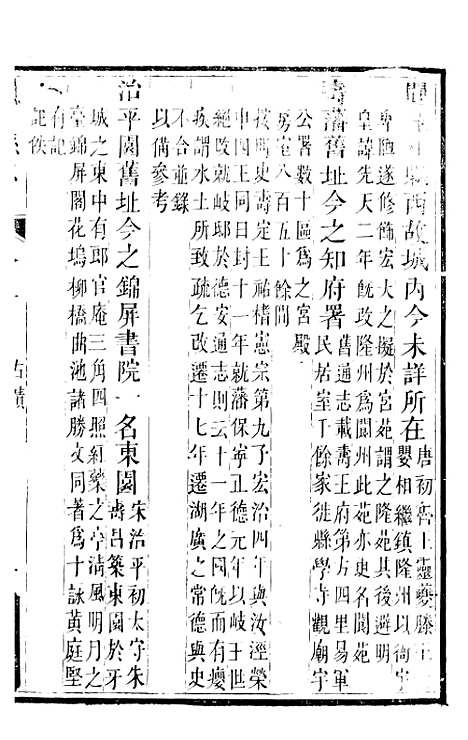 西故城內今未詳所在
唐初魯王靈夔滕王
嬰相繼鎮隆州以衙宇
卑陋遂修飾宏大之擬於宮苑謂之隆苑其後避明
皇諱先天二年旣改隆州爲閬州此苑亦更名閬苑
壽藩舊址今之知府署
舊通志載壽王府第方四里易軍
民居室丁餘家徙縣學寺觀廟宇
公署數十區爲之宮殿
房室八百五十餘間
按明史壽定王祐榰憲宗第九子宏治四年與汝涇榮
申四王同日封十一年就藩保寧正德元年以岐王世
絕改就岐邸於德安通志則云十一年之國旣而有癭
疾謂水土所致疏乞改遷十七年遷湖廣之常德與史
不合並錄
以備參考
治平園舊址今之錦屏書院一名東園
宋治平初太守朱
壽昌築東園於牙
城之東中有郎官庵三角四照紅藥之亭清風明月之
堂錦屏閣花塢柳橋曲池諸勝文同著爲十詠黃庭堅
有記
記佚
古蹟